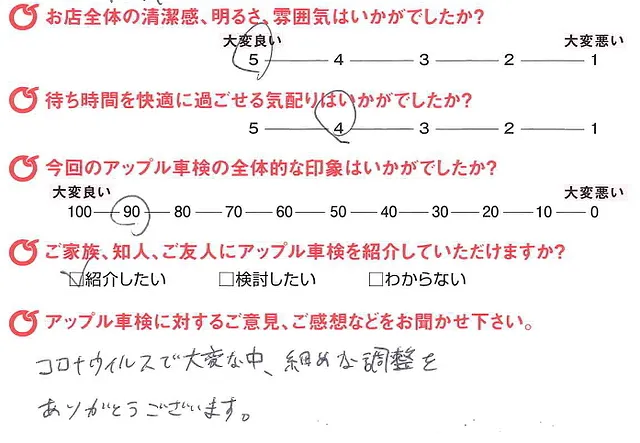 お店全体の清潔感、明るさ、雰囲気はいかがでしたか?
大変良い 大変悪い
5 4 3 2 1
待ち時間を快適に過ごせる気配りはいかがでしたか?
5 4 3 2 1
今回のアップル車検の全体的な印象はいかがでしたか?
大変良い 大変悪い
100 90 80 70 60 50 40 30 20 10 0
ご家族、知人、ご友人にアップル車検を紹介していただけますか?
☑紹介したい □検討したい □わからない
アップル車検に対するご意見、ご感想などをお聞かせ下さい。
コロナウイルスで大変な中、細めな調整を
ありがとうございます。